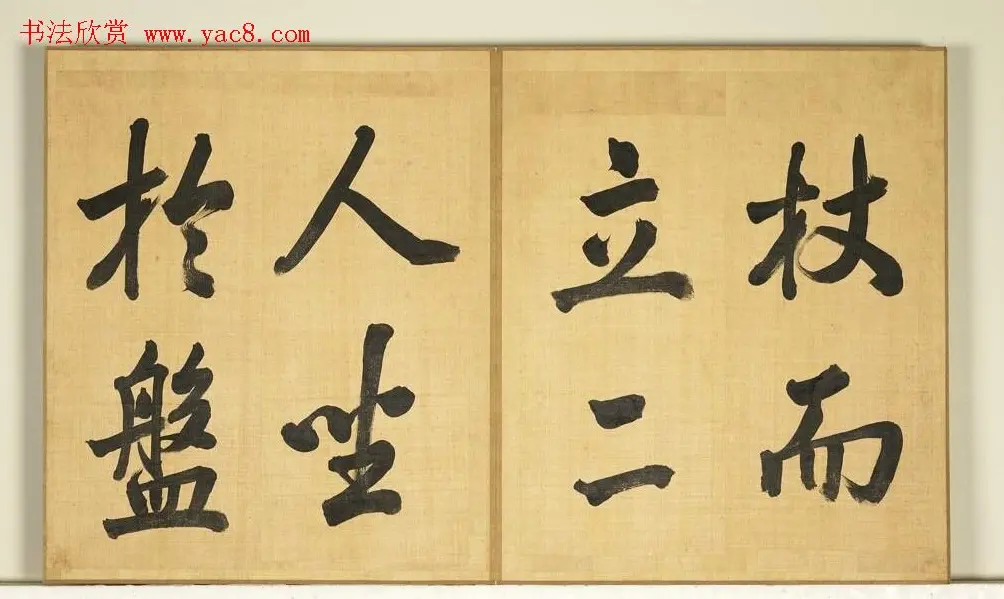 书法欣赏 www.yac8.com
杖而
立二
人坐
於盤